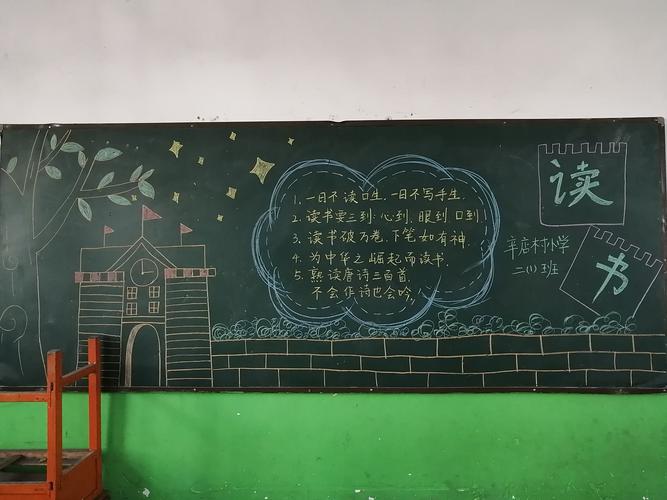 1. 一日不读口生, 一日不写手生.
2. 读书要三到: 心到, 眼到, 口到!
3. 读书破万卷, 下笔如有神.
4. 为中华之崛起而读书.
5. 熟读唐诗三百首,
不会作诗也会吟,
读
书
辛店村小学
二(1)班